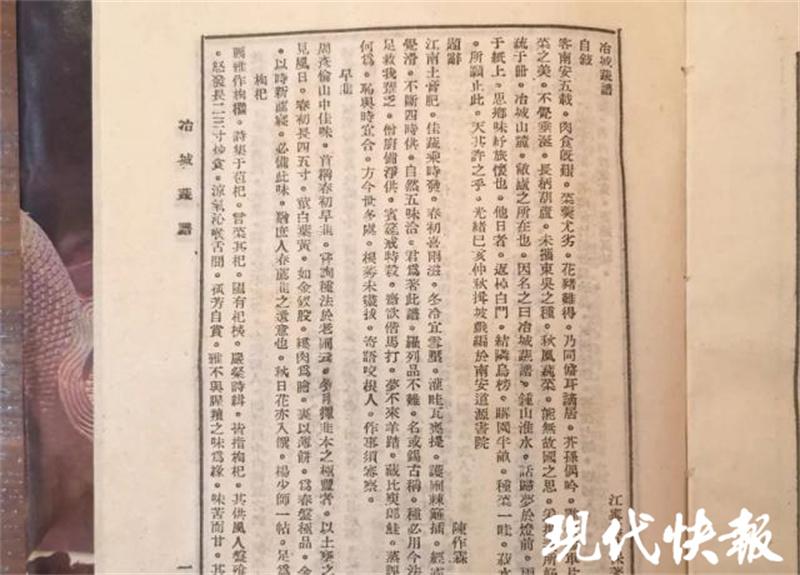 冶城蔬譜
自敍
江寧
客南安五載。肉食旣艱。菜羹尤劣。花豬難得。乃同儋耳謫居。芥孫偶吟。
菜之美。不覺垂涎。長柄葫蘆。未攜東吳之種。秋風蓴菜。能無故國之思。
疏于冊。冶城山麓。敝廬之所在也。因名之曰冶城蔬譜。鍾山淮水。話歸夢於燈前。
于紙上。思鄉味紓旅懷也。他日者。返棹白門。結隣烏榜。購園半畝。種菜一畦。菽水
所願止此。天其許之乎。光緖己亥仲秋揖坡戲編於南安道源書院
題辭
陳作霖
江南土膏肥。佳蔬乘時發。春初喜雨滋。冬冷宜雪壓。灌畦瓦甕提。護圃棘籬插。經霜
覺滑。不斷四時供。自然五味洽。君爲著此譜。羅列品不雜。名或錫古稱。種必用今法
足救我饞乏。僧廚備淨供。賓筵戒特殺。齋欲偕馬打。夢不來羊踏。藏比庾郎鮭。蒸
何爲。恥與時宜合。方今世多虞。稂莠未盡拔。寄語咬根人。作事須審察。
早韭
周彥倫山中佳味。首稱春初早韭。嘗詢種法於老圃云。冬月擇韭本之極豐者。以土壅之
見風日。春初長四五寸。莖白葉黃。如金釵股。縷肉爲膾。裹以薄餅。爲春盤極品。余
以時新薦寢。必備此味。猶庶人春薦韭之遺意也。秋日花亦入饌。楊少師一帖。足爲
枸杞
爾雅作枸檵。詩集于苞杞。言采其杞。園有杞桋。嚴粲詩緝。皆指枸杞。其供風人盤飱
怒發長二三寸炒食。涼氣沁喉舌間。孤芳自賞。雅不與腥羶之味爲緣。味苦而甘。其
冶城蔬譜
一
現代快報